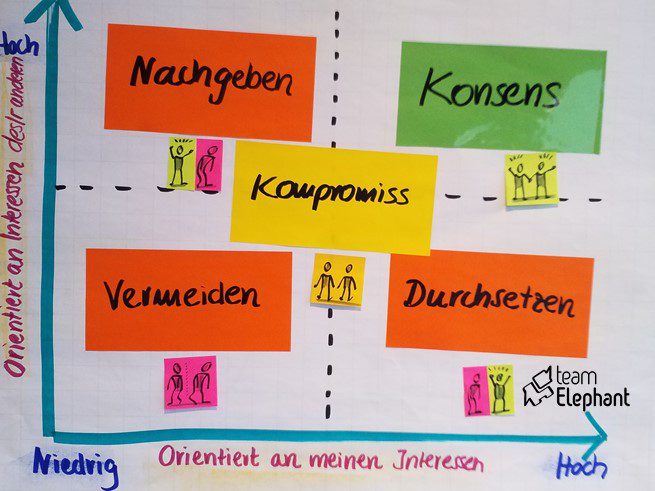 Hoch
Nachgeben
Konsens
Kompromiss
Orientiert an Interessen des/r anderen
Vermeiden
Durchsetzen
team
Elephant
Niedrig
Orientiert an meinen Interessen
Hoch